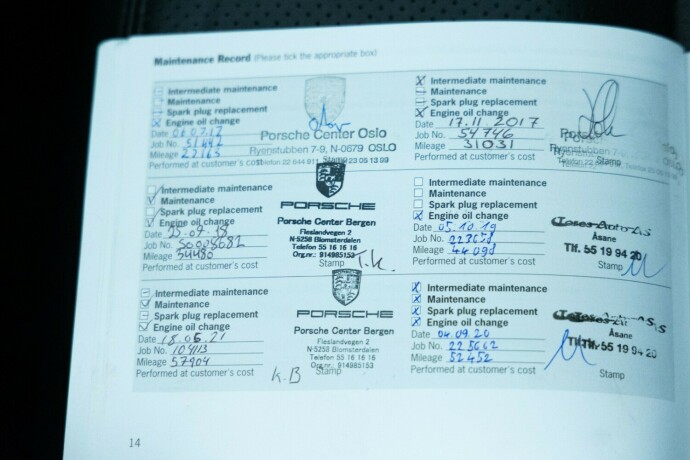 Maintenance Record (Please tick the appropriate box)
Intermediate maintenance
Maintenance
Spark plug replacement
Engine oil change
Date
Job No.
Mileage 22163
Performed at customer's cost
Porsche Center Oslo
Ryenstubben 7-9, N-0679 OSLO
Telefon 22 644 911 Stamp 23 05 13 99
X Intermediate maintenance
Maintenance
Spark plug replacement
X Engine oil change
Date 17.11.2017
Job No. 54746
Mileage 31031
Performed at customer's cost
Stamp
Intermediate maintenance
Maintenance
Spark plug replacement
Engine oil change
Date
Job No.
Mileage 34480
Performed at customer's cost
PORSCHE
Porsche Center Bergen
Fleslandvegen 2
N-5258 Blomsterdalen
Telefon 55 16 16 16
Org.nr.: 914985153
Stamp T.K.
Intermediate maintenance
Maintenance
Spark plug replacement
X Engine oil change
Date 05.10.19
Job No.
Mileage
Performed at customer's cost
Åsane
Tlf. 55 19 94 20
Stamp
Intermediate maintenance
Maintenance
Spark plug replacement
Engine oil change
Date 18.06.21
Job No.
Mileage 57904
Performed at customer's cost
PORSCHE
Porsche Center Bergen
Fleslandvegen 2
N-5258 Blomsterdalen
Telefon 55 16 16 16
Org.nr.: 914985153
K.B Stamp
X Intermediate maintenance
X Maintenance
X Spark plug replacement
X Engine oil change
Date 04.09.20
Job No. 225662
Mileage 52452
Performed at customer's cost
55 19 94 20
Stamp
14